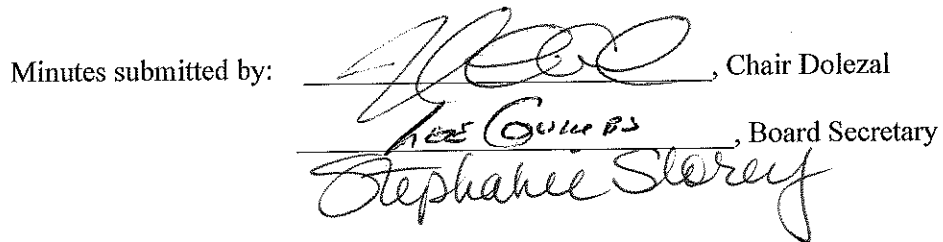 Minutes submitted by: , Chair Dolezal
, Board Secretary
Stephanie Storey